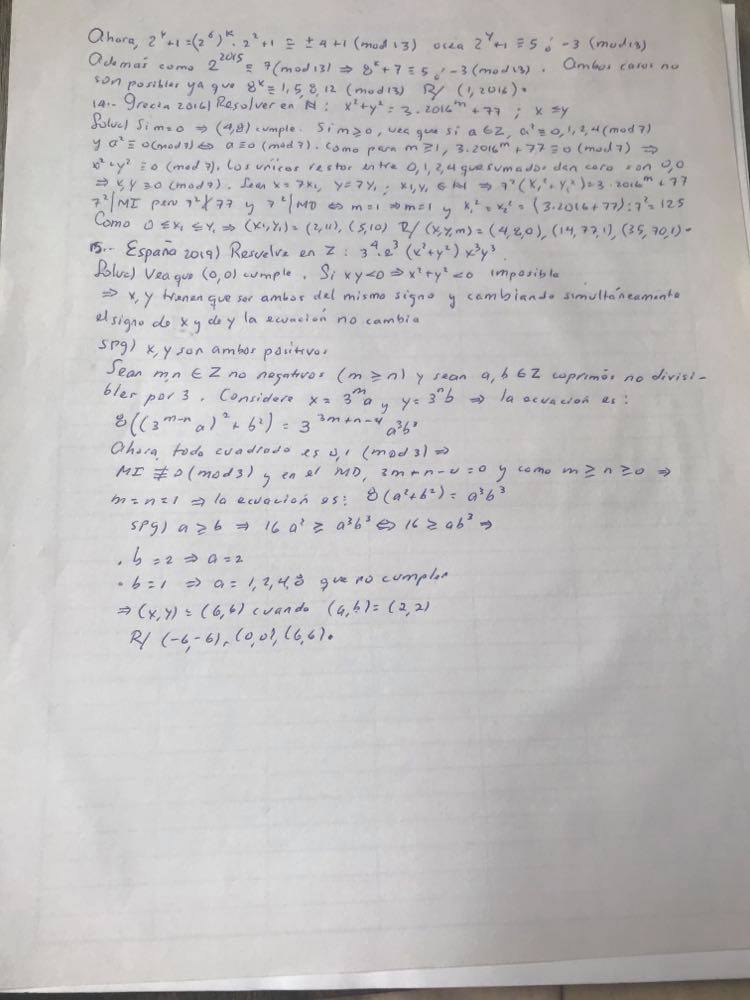 Ahora, 2^y+1 = (2^6)^k · 2^2+1 ≡ ±4+1 (mod 13) osea 2^y+1 ≡ 5 ó -3 (mod 13)
Además como 2^2015 ≡ 7 (mod 13) ⇒ 8^x+7 ≡ 5 ó -3 (mod 13). Ambos casos no
son posibles ya que 8^x ≡ 1, 5, 8, 12 (mod 13) R/ (1, 2016).
14.- Grecia 2016) Resolver en N: x²+y² = 3·2016^m + 77 ; x ≤ y
Soluc) Si m=0 ⇒ (4,8) cumple. Si m≥0, vea que si a ∈ Z, a² ≡ 0,1,2,4 (mod 7)
y a² ≡ 0 (mod 7) ⇔ a ≡ 0 (mod 7). Como para m ≥ 1, 3·2016^m + 77 ≡ 0 (mod 7) ⇒
x²+y² ≡ 0 (mod 7). Los unicos restos entre 0,1,2,4 que sumados dan cero son 0,0
⇒ x, y ≡ 0 (mod 7). Sean x = 7x₁, y = 7y₁ ; x₁, y₁ ∈ N ⇒ 7²(x₁²+y₁²) = 3·2016^m + 77
7² | MI pero 7² ∤ 77 y 7² | MD ⇔ m=1 ⇒ m=1 y x₁² = x₂² = (3·2016+77):7² = 125
Como 0 ≤ x₁ ≤ y₁ ⇒ (x₁,y₁) = (2,11), (5,10) R/ (x,y,m) = (4,8,0), (14,77,1), (35,70,1).
15.- España 2019) Resuelve en Z: 3^4 · 2^3 (x²+y²) x³y³
Soluc) Vea que (0,0) cumple. Si xy<0 ⇒ x²+y²<0 imposible
⇒ x, y tienen que ser ambos del mismo signo y cambiando simultáneamente
el signo de x y de y la ecuación no cambia
spg) x, y son ambos positivos
Sean m, n ∈ Z no negativos (m ≥ n) y sean a, b ∈ Z coprimos no divisi-
bles por 3. Considere x = 3^m a y y = 3^n b ⇒ la ecuación es:
8((3^{m-n} a)² + b²) = 3^{3m+n-4} a³b³
Ahora, todo cuadrado es 0,1 (mod 3) ⇒
MI ≢ 0 (mod 3) y en el MD, 3m+n-4=0 y como m ≥ n ≥ 0 ⇒
m=n=1 ⇒ la ecuación es: 8(a²+b²) = a³b³
spg) a ≥ b ⇒ 16a² ≥ a³b³ ⇔ 16 ≥ ab³ ⇒
· b=2 ⇒ a=2
· b=1 ⇒ a = 1,2,4,8 que no cumplen
⇒ (x,y) = (6,6) cuando (a,b) = (2,2)
R/ (-6,-6), (0,0), (6,6).